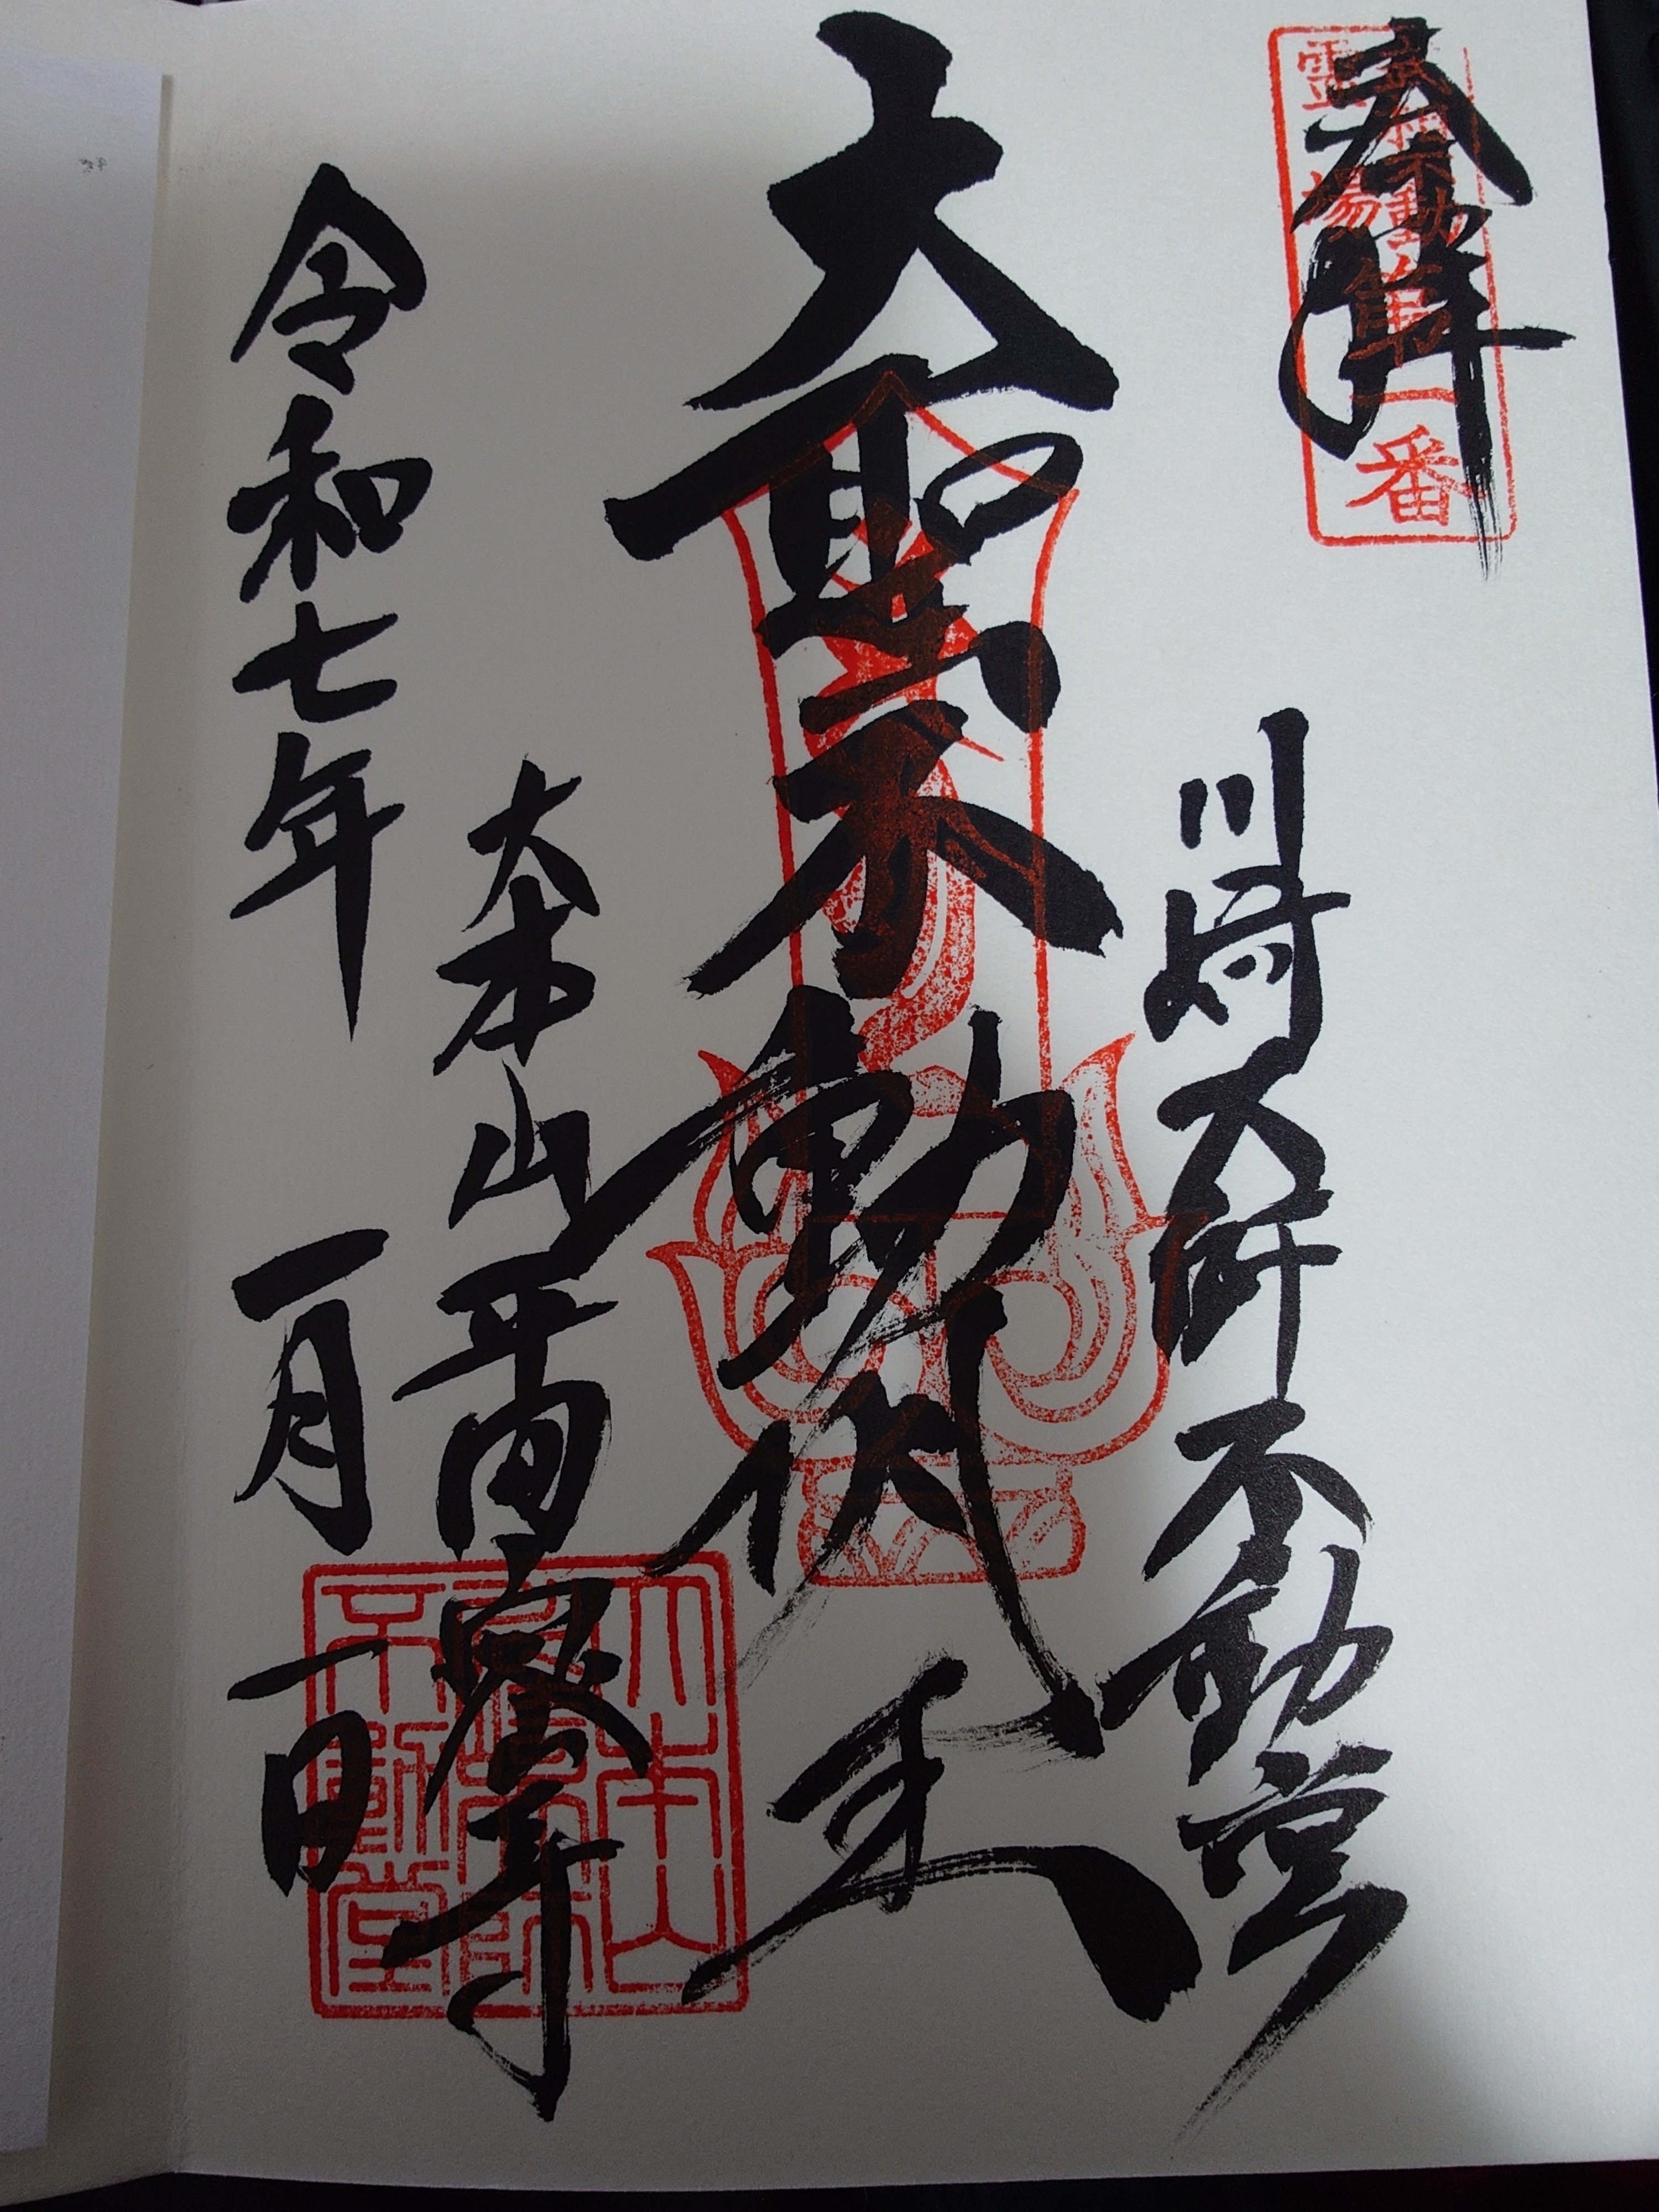 奉拝
武相不動
霊場
第一番
川崎大師不動堂
大聖不動明王
大本山平間寺
令和七年一月一日
大本山
不動堂